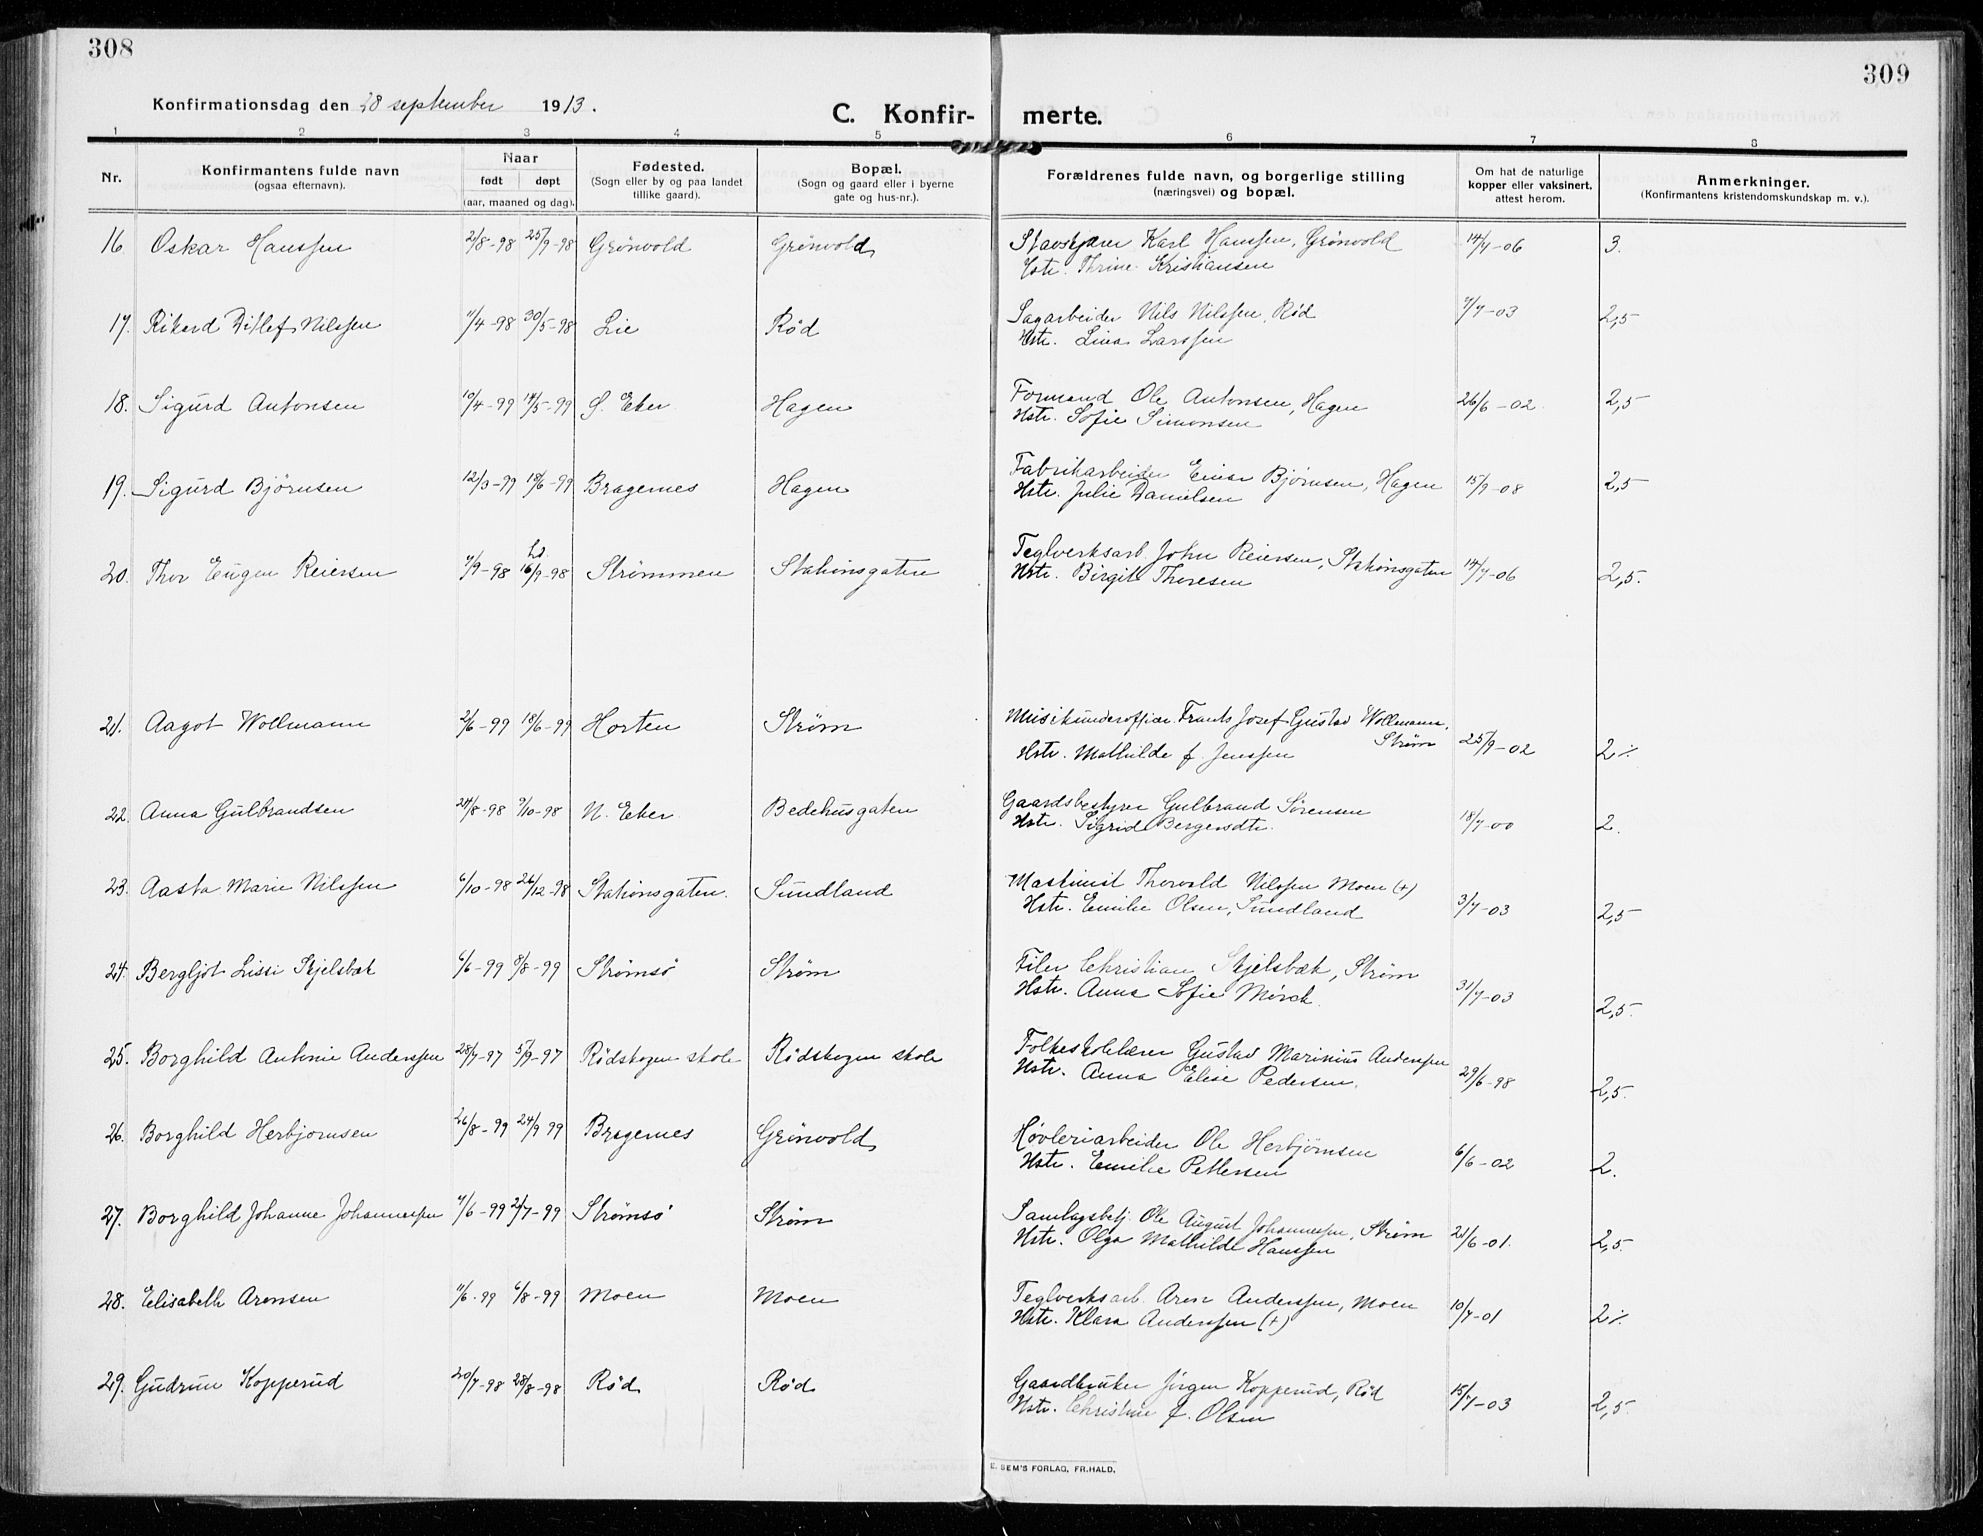 308
309
Konfirmationsdag den 28 september 1913.
C. Konfir- merte.
1 2 3 4 5 6 7 8
Nr.
Konfirmantens fulde navn
(ogsaa efternavn).
Naar
født døpt
(aar, maaned og dag).
Fødested.
(Sogn eller by og paa landet
tillike gaard).
Bopæl.
(Sogn og gaard eller i byerne
gate og hus-nr.).
Forældrenes fulde navn, og borgerlige stilling
(næringsvei) og bopæl.
Om hat de naturlige
kopper eller vaksinert,
attest herom.
Anmerkninger.
(Konfirmantens kristendomskundskap m. v.).
16 Oskar Hanssen 2/8-98 25/9-98 Grönvold Grönvold Stavskjærer Karl Hanssen, Grönvold 14/7-06 3.
Hstr. Thrine Kristiansen
17. Rikard Ditlef Nilssen 11/4-98 30/5-98 Lie Rød Sagarbeider Nils Nilssen, Rød 7/7-03 2,5
Hstr. Lina Larssen
18. Sigurd Antonsen 10/4-99 14/5-99 S. Eker Hagen Formand Ole Antonsen, Hagen 26/6-02. 2,5
Hstr. Sofie Simonsen
19. Sigurd Bjørnsen 12/3-99 18/6-99 Bragernes Hagen Fabrikarbeider Einar Bjørnsen, Hagen 15/9-08 2,5
Hstr. Julie Danielsen
20. Thor Eugen Reiersen 7/9-98 16/9-98 Strömmen Stationsgaten Teglverksarb. John Reiersen, Stationsgaten 14/7-06 2,5.
Hstr. Birgit Thoresen
21. Aagot Wollmann 2/6-99 18/6-99 Horten Strøm Musikunderofficer Frants Josef Gustav Wollmann,
Hstr. Mathilde f. Jenssen Strøm 25/9-02 2 ./.
22. Anna Gulbrandsen 24/8-98 9/10-98 N. Eker Bedehusgaten Gaardsbestyrer Gulbrand Sörensen 18/7-00 2.
Hstr. Sigrid Bergersdtr.
23. Aasta Marie Nilssen 6/10-98 26/12-98 Stationsgaten. Sundland Maskinist Thorvald Nilssen Moen (+)
Hstr. Emilie Olsen, Sundland 3/7-03 2,5
24. Bergljot Lissi Skjelsbæk 6/6-99 8/8-99 Strømsö Strøm Filer Christian Skjelsbæk, Strøm
Hstr. Anna Sofie Mörck. 31/7-03 2,5.
25. Borghild Antonie Anderssen 28/7-97 5/9-97 Rödskogen skole Rödskogen skole Folkeskolelærer Gustav Marinius Anderssen
Hstr. Anna Elise Pedersen. 29/6-98 2,5.
26. Borghild Herbjørnsen 26/8-99 24/9 99 Bragernes Grönvold Høvleriarbeider Ole Herbjørnsen
Hstr. Emilie Pettersen 6/6-02 2.
27. Borghild Johanne Johannessen 7/6-99 2/7-99 Strömsö Strøm Samlagsbetj. Ole August Johannessen, Strøm 21/6-01. 2,5.
Hstr. Olga Mathilde Hanssen
28. Elisabeth Arensen 11/6-99 6/8-99 Moen Moen Teglverksarb. Aren Anderssen, Moen 10/7-01 2 ./.
Hstr. Klara Anderssen (+)
29. Gudrun Kopperud 20/7-98 28/8-98 Rød Rød Gaardbruker Jörgen Kopperud, Rød 15/7-03 2,5.
Hstr. Christine f. Olsen
E. SEM'S FORLAG, FR.HALD.